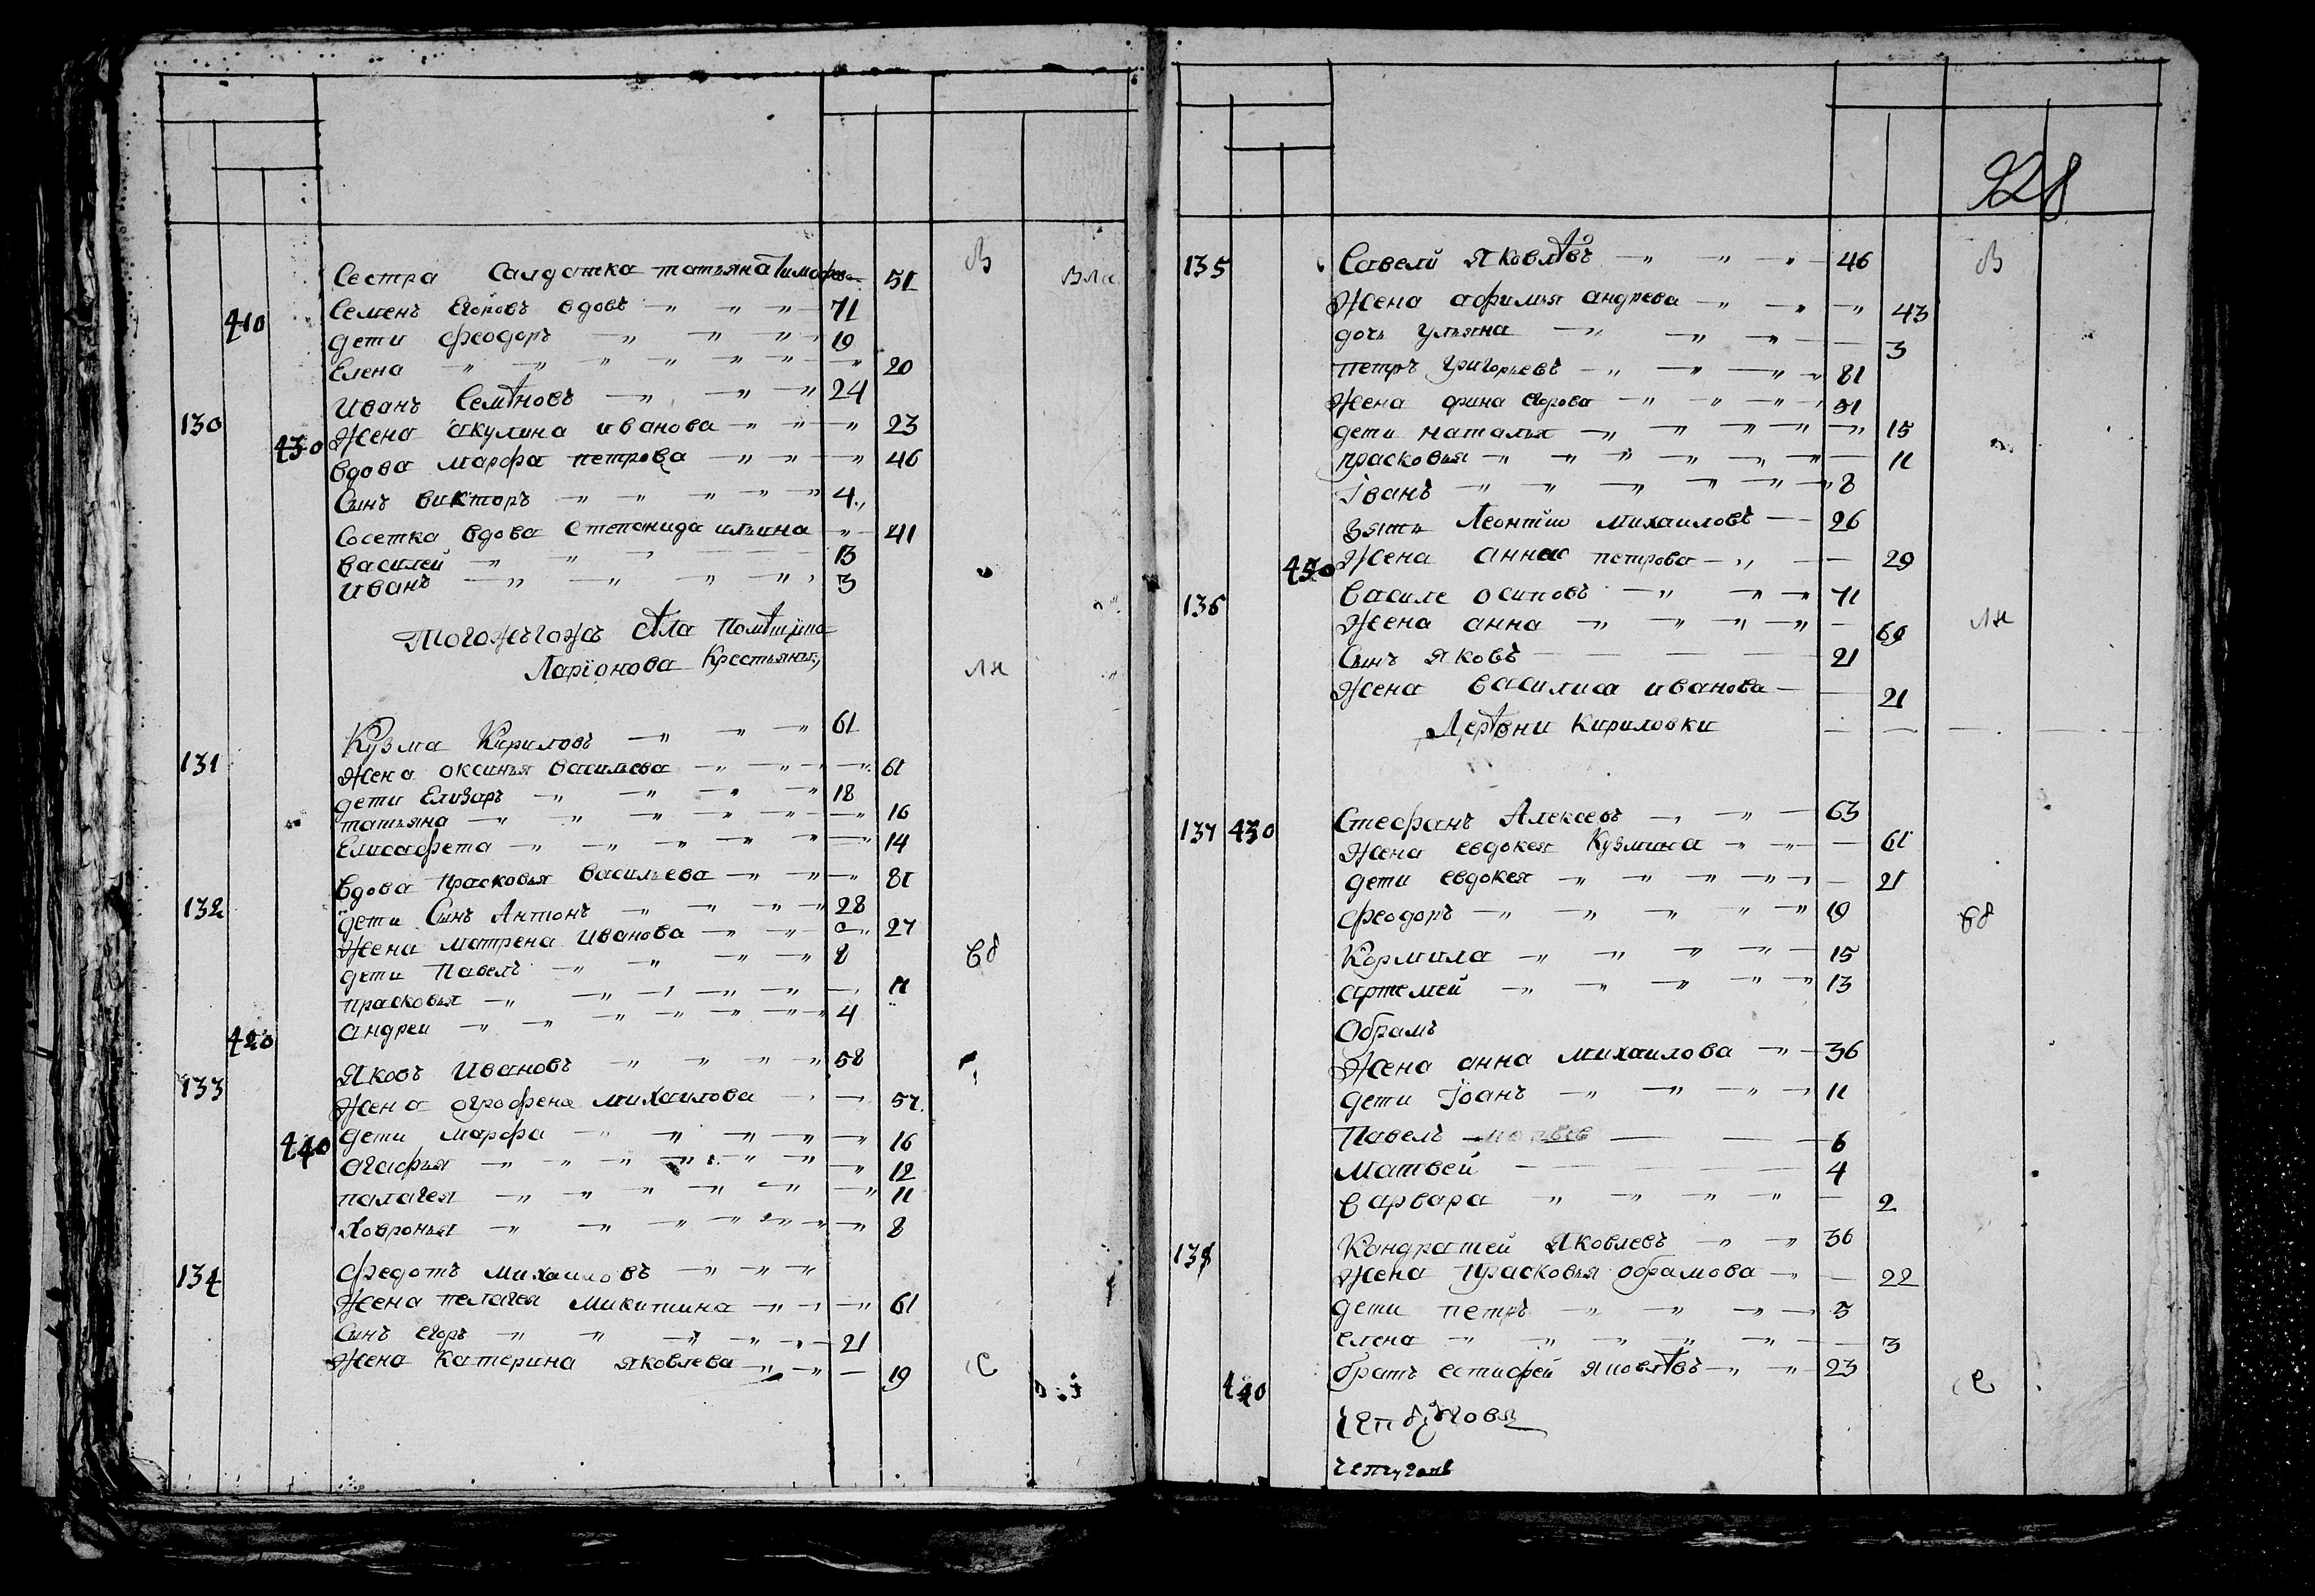 Сестра Салдатка татьяна Тимофе 51
В
Вла
410
Семенъ Егоровъ вдовъ 71
дети феодоръ 19
Елена 20
Иванъ Семѣновъ 24
130
430
Жена акулина иванова 23
вдова марфа петрова 46
Сынъ викторъ 4
Сосетка вдова Степанида ильина 41
василей 13
иванъ 3
Тогожъгожъ сѣла Помѣщика
Ларіонова Крестьянъ
лн
Кузма Кириловъ 61
131
Жена оксинья васильева 61
дети Елизаръ 18
татьяна 16
Елисафета 14
вдова Прасковья васильева 81
132
дети Сынъ Антонъ 28
Жена матрена Иванова 27
дети Павелъ 8
вд
прасковья 11
андреи 4
420
Яковъ Ивановъ 58
133
Жена ографена михаилова 57
440
дети марфа 16
агафья 12
палагея 11
Ховронья 8
федотъ михаиловъ
134
Жена пелагея микитина 61
Сынъ егоръ 21
Жена Катерина яковлева 19
С
928
135
Савели Яковлѣвъ 46
В
Жена афимья андрева 43
дочь ульяна 3
петръ григорьевъ 81
Жена фина егорова 51
дети наталья 15
прасковья 11
Іванъ 8
зять Леонтіи михаиловъ 26
450
Жена анна петрова 29
136
василе осиповъ 71
Жена анна 69
лн
Сынъ яковъ 21
Жена василиса иванова 21
Дерѣвни Кириловки
137 430
Стефанъ Алексевъ 63
Жена евдокея Кузмина 61
дети евдокея 21
феодоръ 19
вд
Кормила 15
артемей 13
Обрамъ
Жена анна михаилова 36
дети Іоанъ 11
Павелъ 6
матвей 4
варвара 2
138
Кандратей Яковлевъ 36
Жена Прасковья обрамова 22
дети петръ 5
елена 3
братъ естифей яковлѣвъ 23
440
С